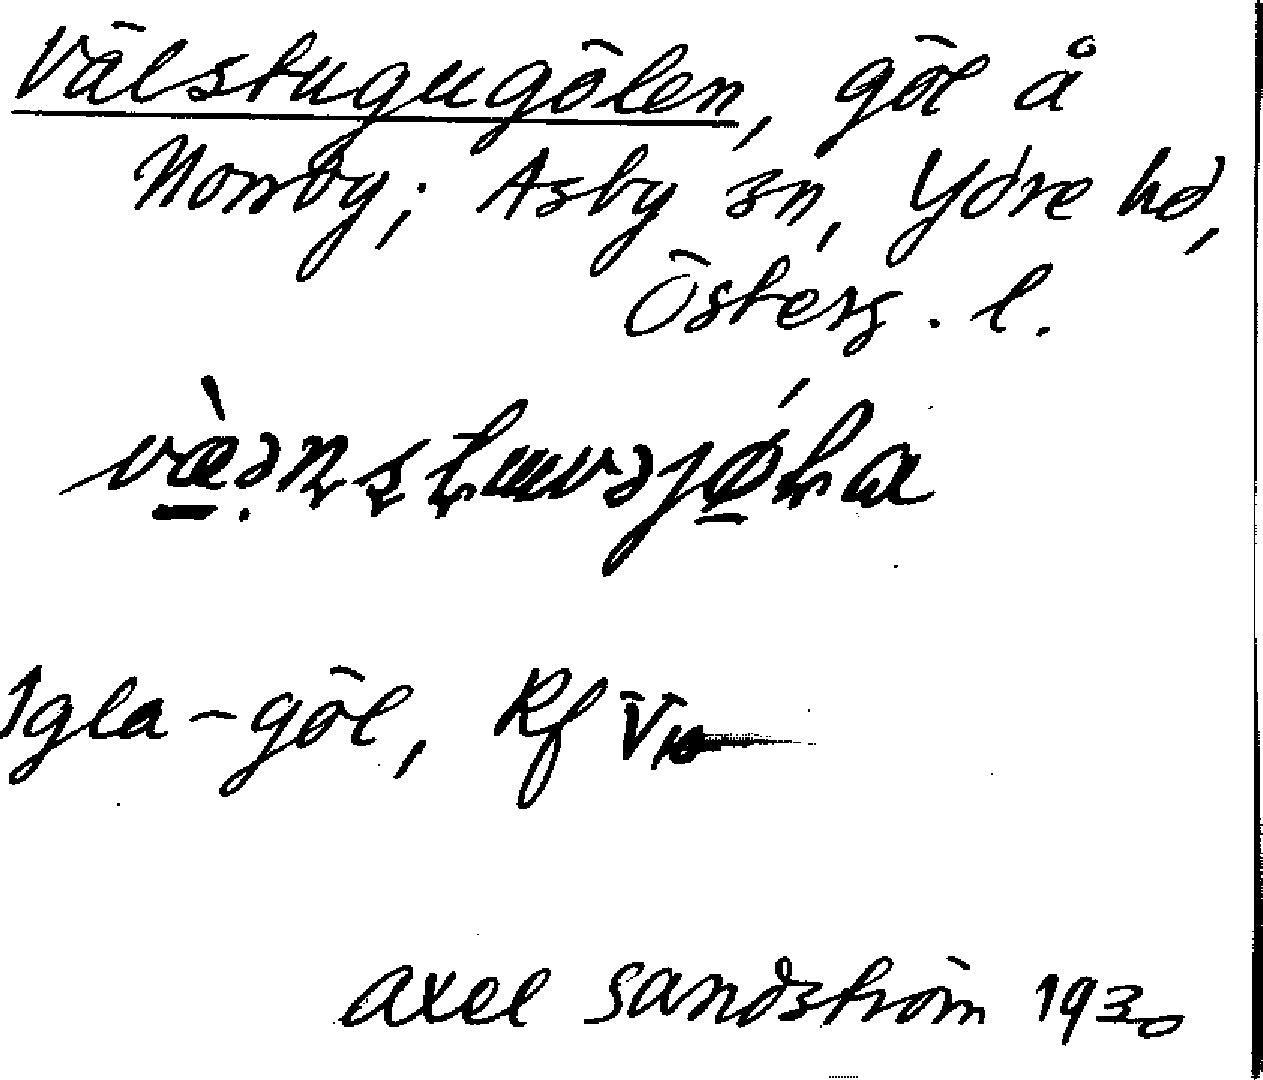 Välstugugölen, göl å
Norrby; Asby sn, Ydre hd,
Österg. l.
Igla-göl, Rf V
Axel Sandström 1930